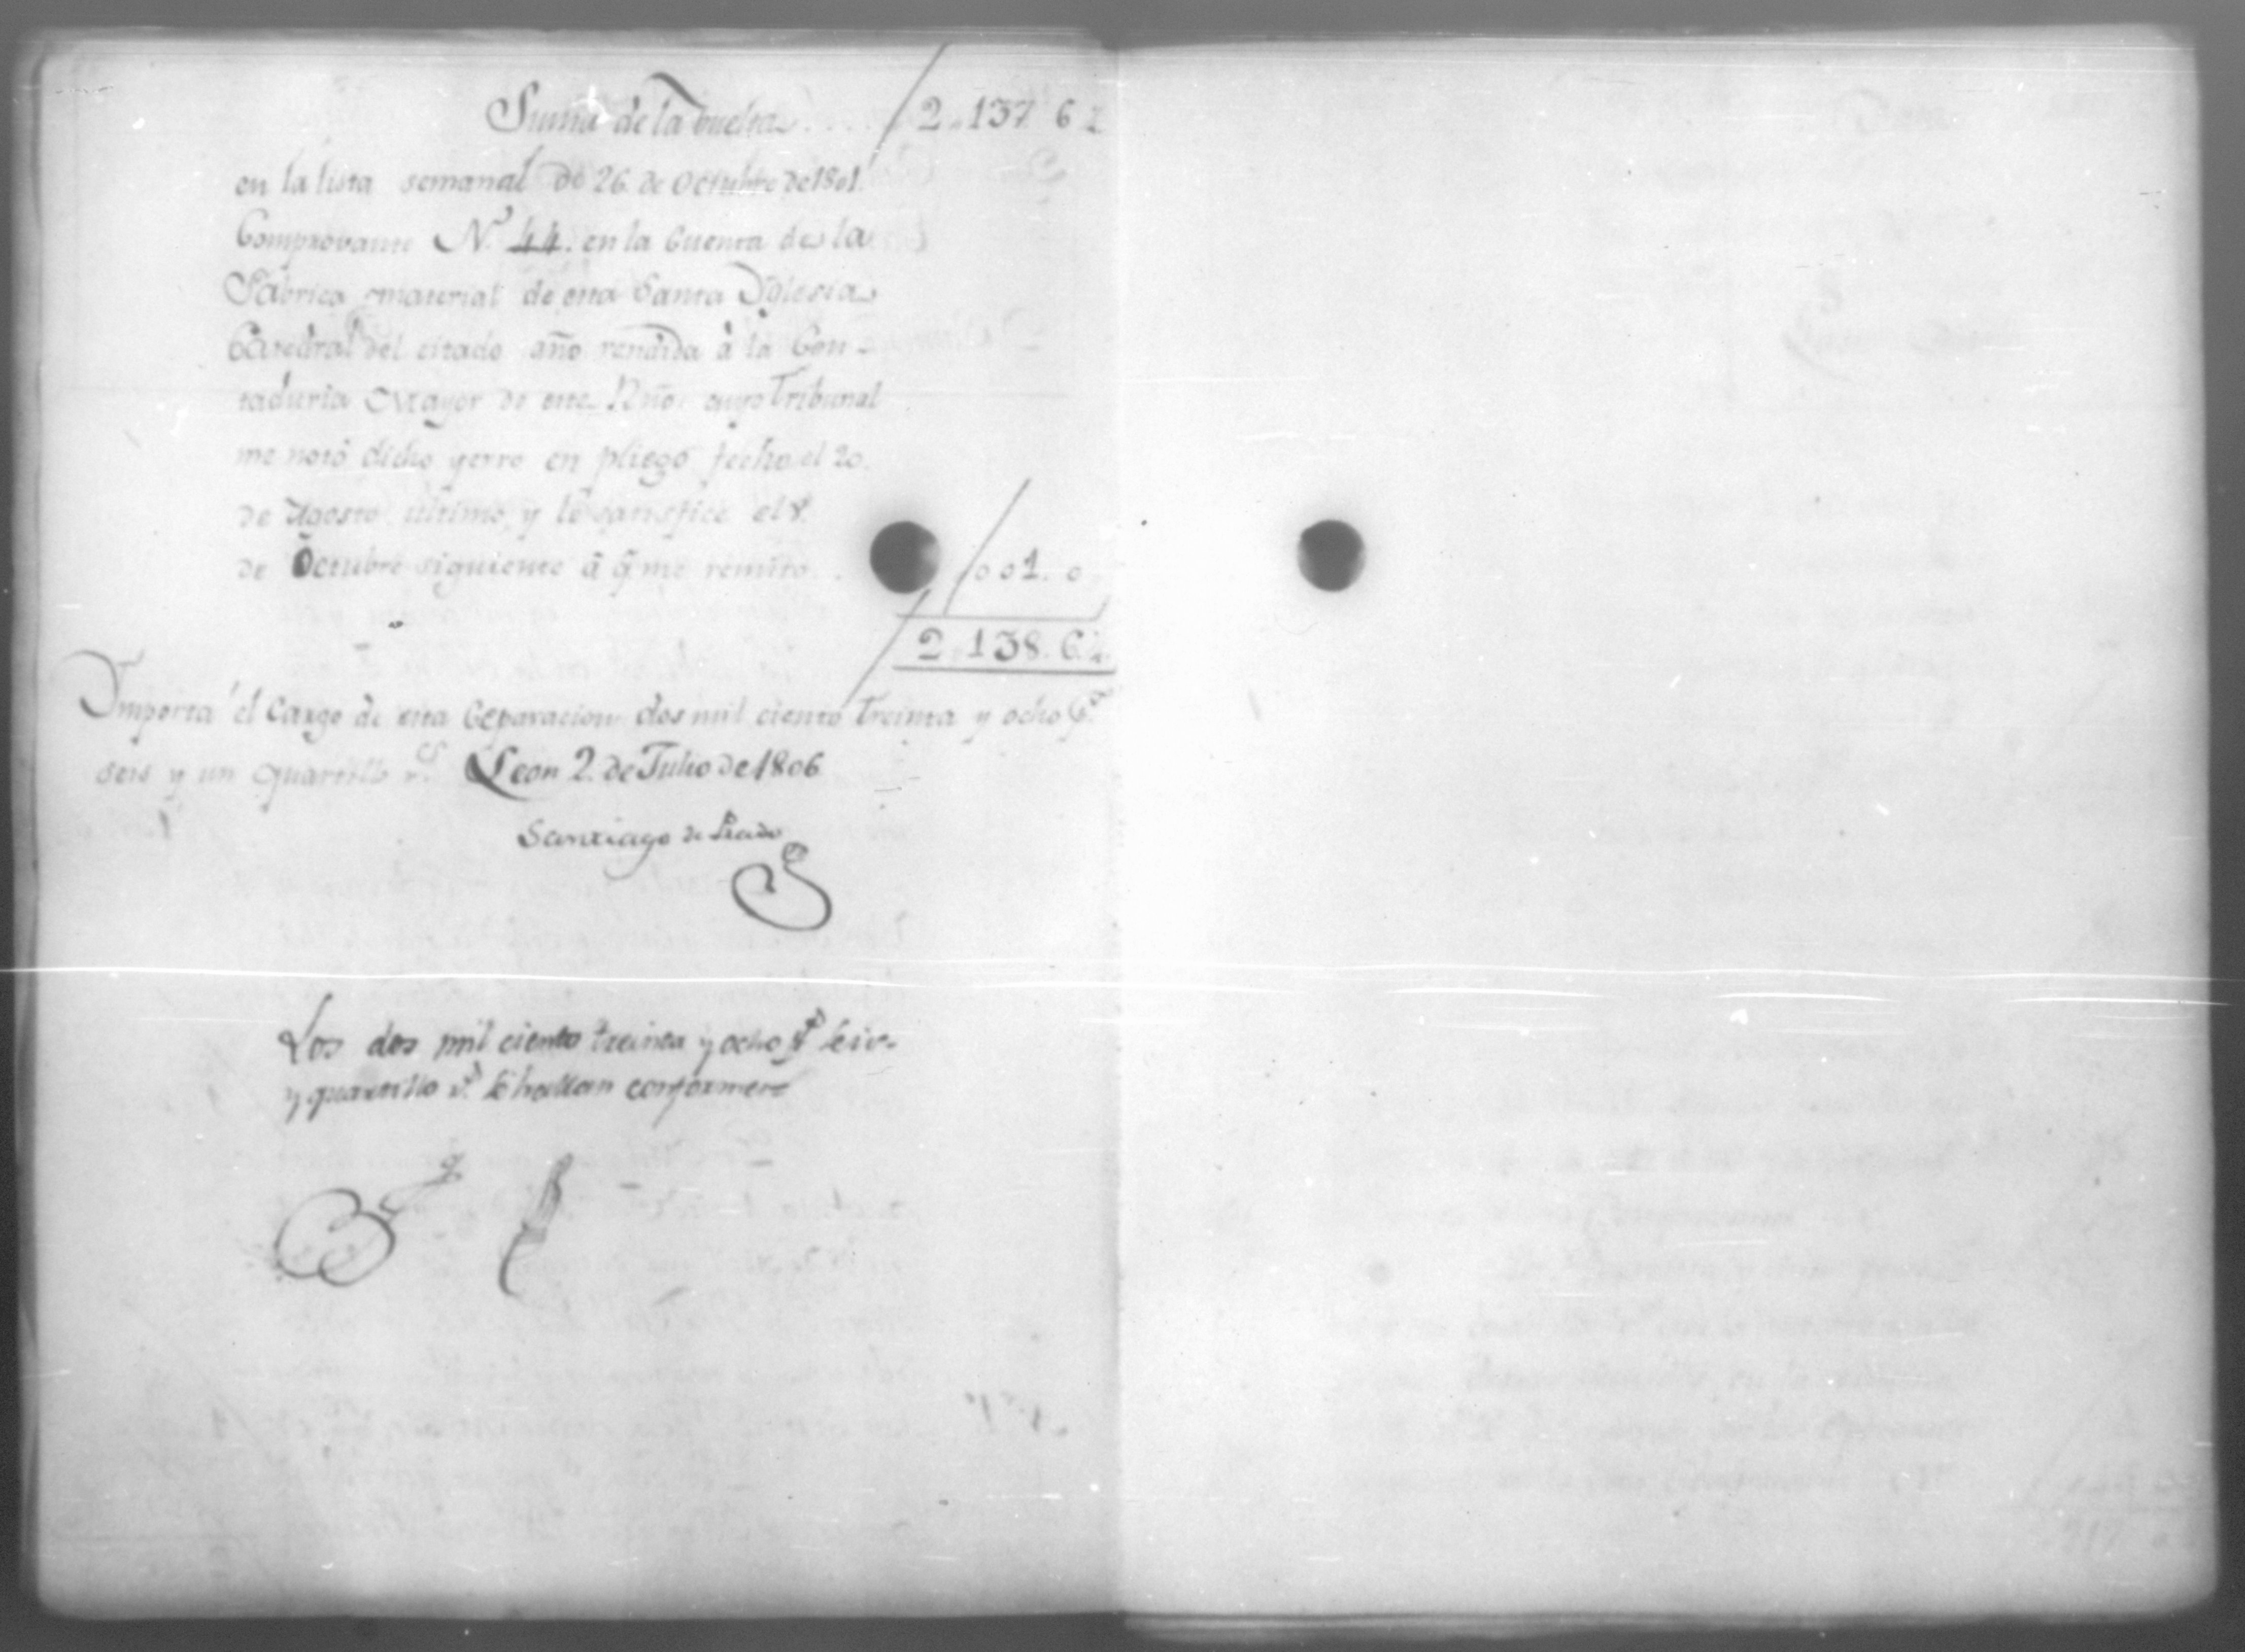 Suma de la buelta .... 2.137 6 ¼
en la lista semanal de 26. de Octubre de 1801.
Comprovante N.º 44. en la Cuenta de la
Fabrica material de esta Santa Yglesia
Catedral del citado año rendida à la Con-
taduria Mayor de este Rño. cuyo Tribunal
me notó dicho yerro en pliego fecho el 20.
de Agosto ultimo, y lo satisfice el 8.
de Octubre siguiente á q̃ me remito . . 001. 0
2.138. 6.¼.
Ymporta el Cargo de esta Separacion dos mil ciento treinta y ocho p.s
seis y un quartillo r.s Leon 2. de Julio de 1806
Santiago de Prado
Los dos mil ciento treinta y ocho p.s seis
y quartillo r.s se hallan conformes